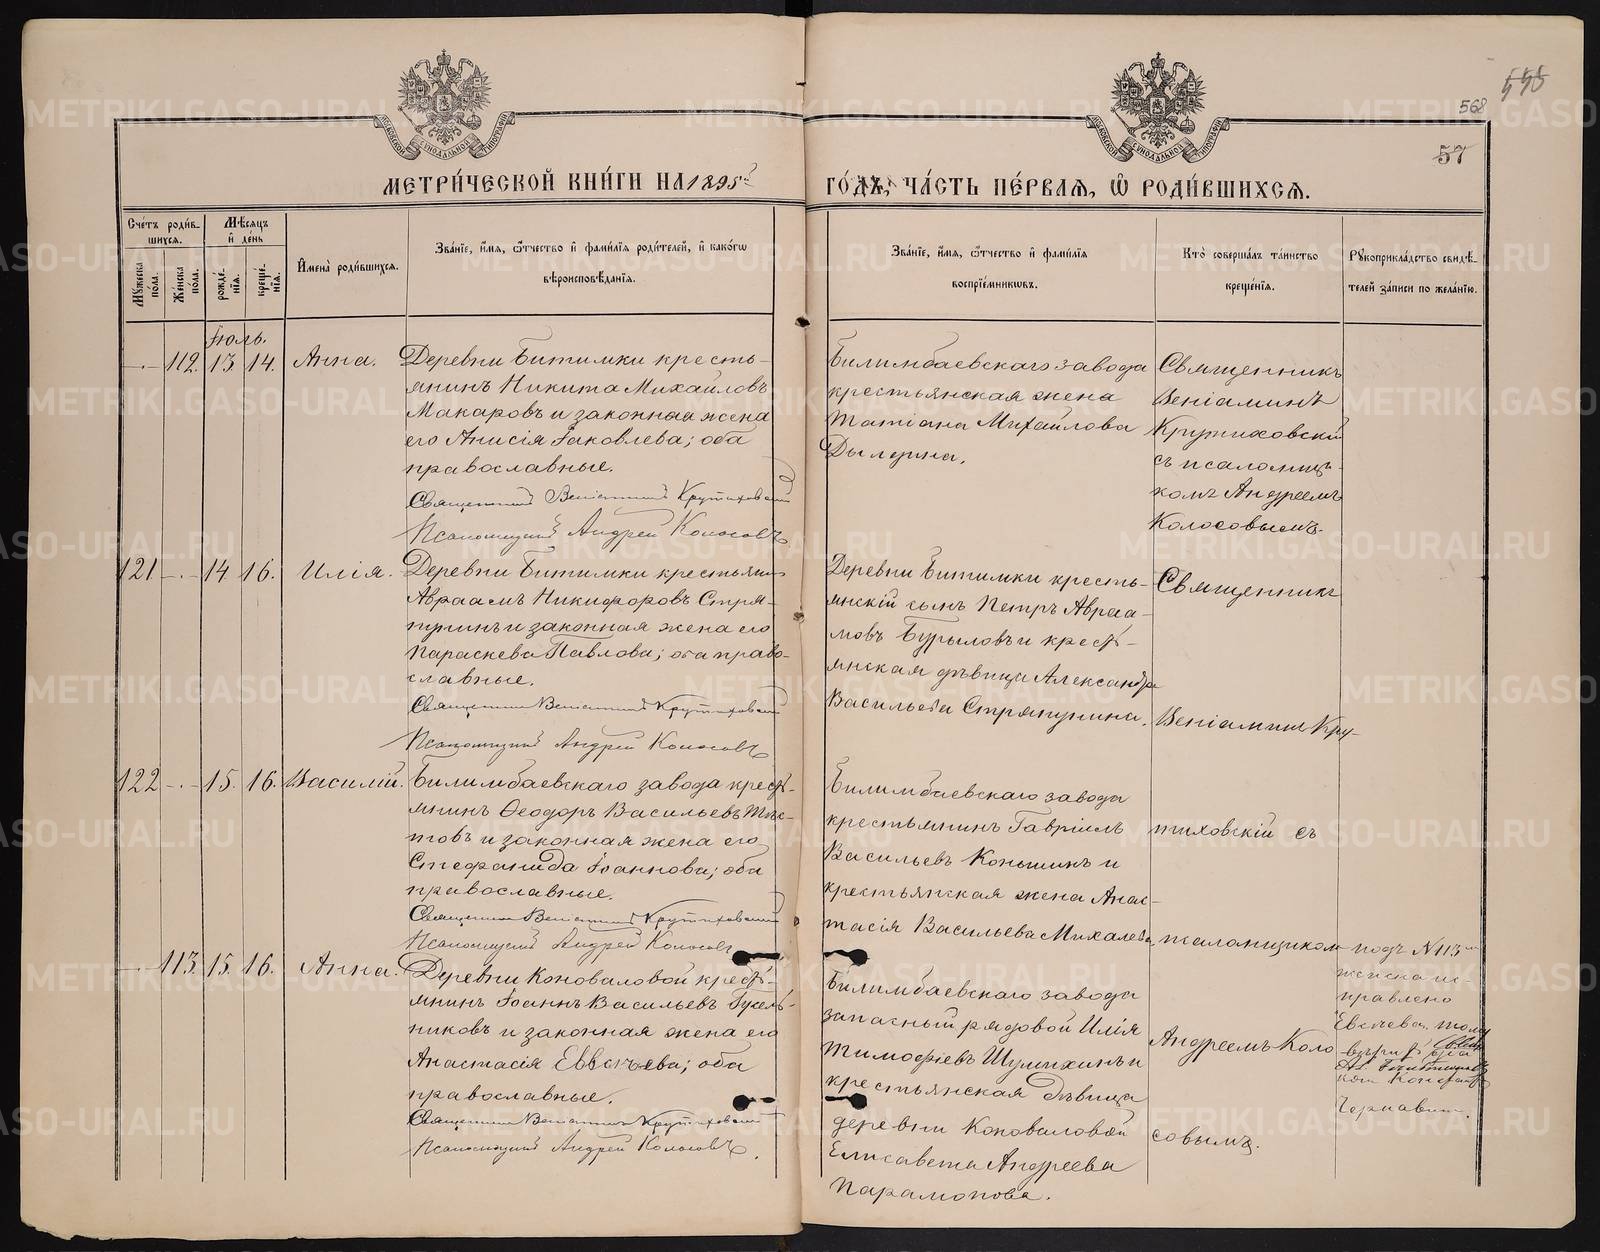 568
57
МОСКОВСКОЙ СѴНОДАЛЬНОЙ ТИПОГРАФІИ
МОСКОВСКОЙ СѴНОДАЛЬНОЙ ТИПОГРАФІИ
МЕТРИ́ЧЕСКОЙ КНИ́ГИ НА 1895й ГО́ДЪ, ЧА́СТЬ ПЕ́РВАЯ, Ѿ РОДИ́ВШИХСЯ.
Сче́тъ роди́в-
шихся.
Мꙋжеска
по́ла.
Же́нска
по́ла.
Мѣ́сяцъ
и҆ де́нь
рожде́-
нїя.
креще́-
нїя.
И҆мена̀ роди́вшихся.
Зва́нїе, и҆́мя, ѻ҆́тчество и҆ фами́лїя роди́телей, и҆ како́гѡ
вѣроисповѣ́данїя.
Зва́нїе, и҆́мя, ѻ҆́тчество и҆ фами́лїя
воспрїе́мникѡвъ.
Кто̀ соверша́лъ та́инство
креще́нїя.
Рꙋкоприкла́дство свидѣ́-
телей за́писи по жела́нїю.
Іюль.
112. 13. 14. Анна.
Деревни Битимки кресть-
янинъ Никита Михайловъ
Макаровъ и законная жена
его Анисія Іаковлева; оба
православные.
Священникъ Веніаминъ Крутиховскій
Псаломщикъ Андрей Колосовъ
Билимбаевскаго завода
крестьянская жена
Татіана Михайлова
Священникъ
Веніаминъ
Крутиховскій
съ псаломщи-
комъ Андреемъ
Колосовымъ.
121 14 16. Илія.
Деревни Битимки крестьянинъ
Авраамъ Никифоровъ Стря-
пунинъ и законная жена его
Параскева Павлова; оба право-
славные.
Священникъ Веніаминъ Крутиховскій
Псаломщикъ Андрей Колосовъ
Деревни Битимки кресть-
янскій сынъ Петръ Авраа-
мовъ Бурыловъ и кресть-
янская дѣвица Александра
Васильева Стряпунина.
Священникъ
Веніаминъ Кру-
122 15. 16. Василій.
Билимбаевскаго завода кресть-
янинъ Ѳеодоръ Васильевъ
и законная жена его
Стефанида Іоаннова; оба
православные.
Священникъ Веніаминъ Крутиховскій
Псаломщикъ Андрей Колосовъ
Билимбаевскаго завода
крестьянинъ Гавріилъ
Васильевъ Коньшинъ и
крестьянская жена Анас-
тасія Васильева Михалева
тиховскій съ
псаломщикомъ
113. 15. 16. Анна.
Деревни Коноваловой кресть-
янинъ Іоаннъ Васильевъ Гусель-
никовъ и законная жена его
Анастасія Евсѣева; оба
православные.
Священникъ Веніаминъ Крутиховскій
Псаломщикъ Андрей Колосовъ.
Билимбаевскаго завода
запасный рядовой Илія
Тимофѣевъ Шумихинъ и
крестьянская дѣвица
деревни Коноваловой
Елисавета Андреева
Парамонова.
Андреемъ Коло
совымъ.
подъ №113мъ
женска ис-
правлено